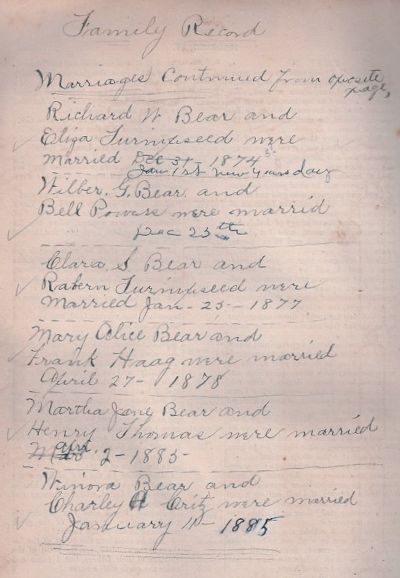 Family Record
Marriages Continued from oposite
page,
Richard W Bear and
Eliza Turnipseed were
married Dec 31 - 1874
Jan 1st New Years day
Wilber. G. Bear and
Bell Powers were married
Dec 25th
Clara S Bear and
Rabern Turnipseed were
Married Jan - 25 - 1877
Mary Alice Bear and
Frank Haag were married
April 27 - 1878
Martha Jane Bear and
Henry Thomas were married
2 - 1885 -
Winora Bear and
Charley Critz were married
January 11 - 1885